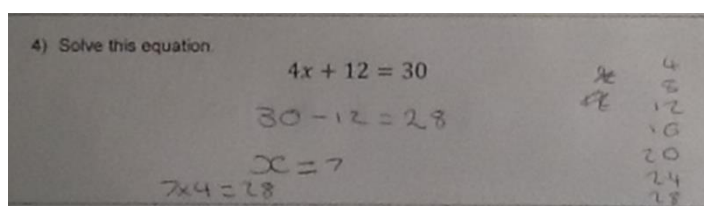 4) Solve this equation.
4x + 12 = 30
30 - 12 = 28
x = 7
7x4 = 28
4
8
12
16
20
24
28